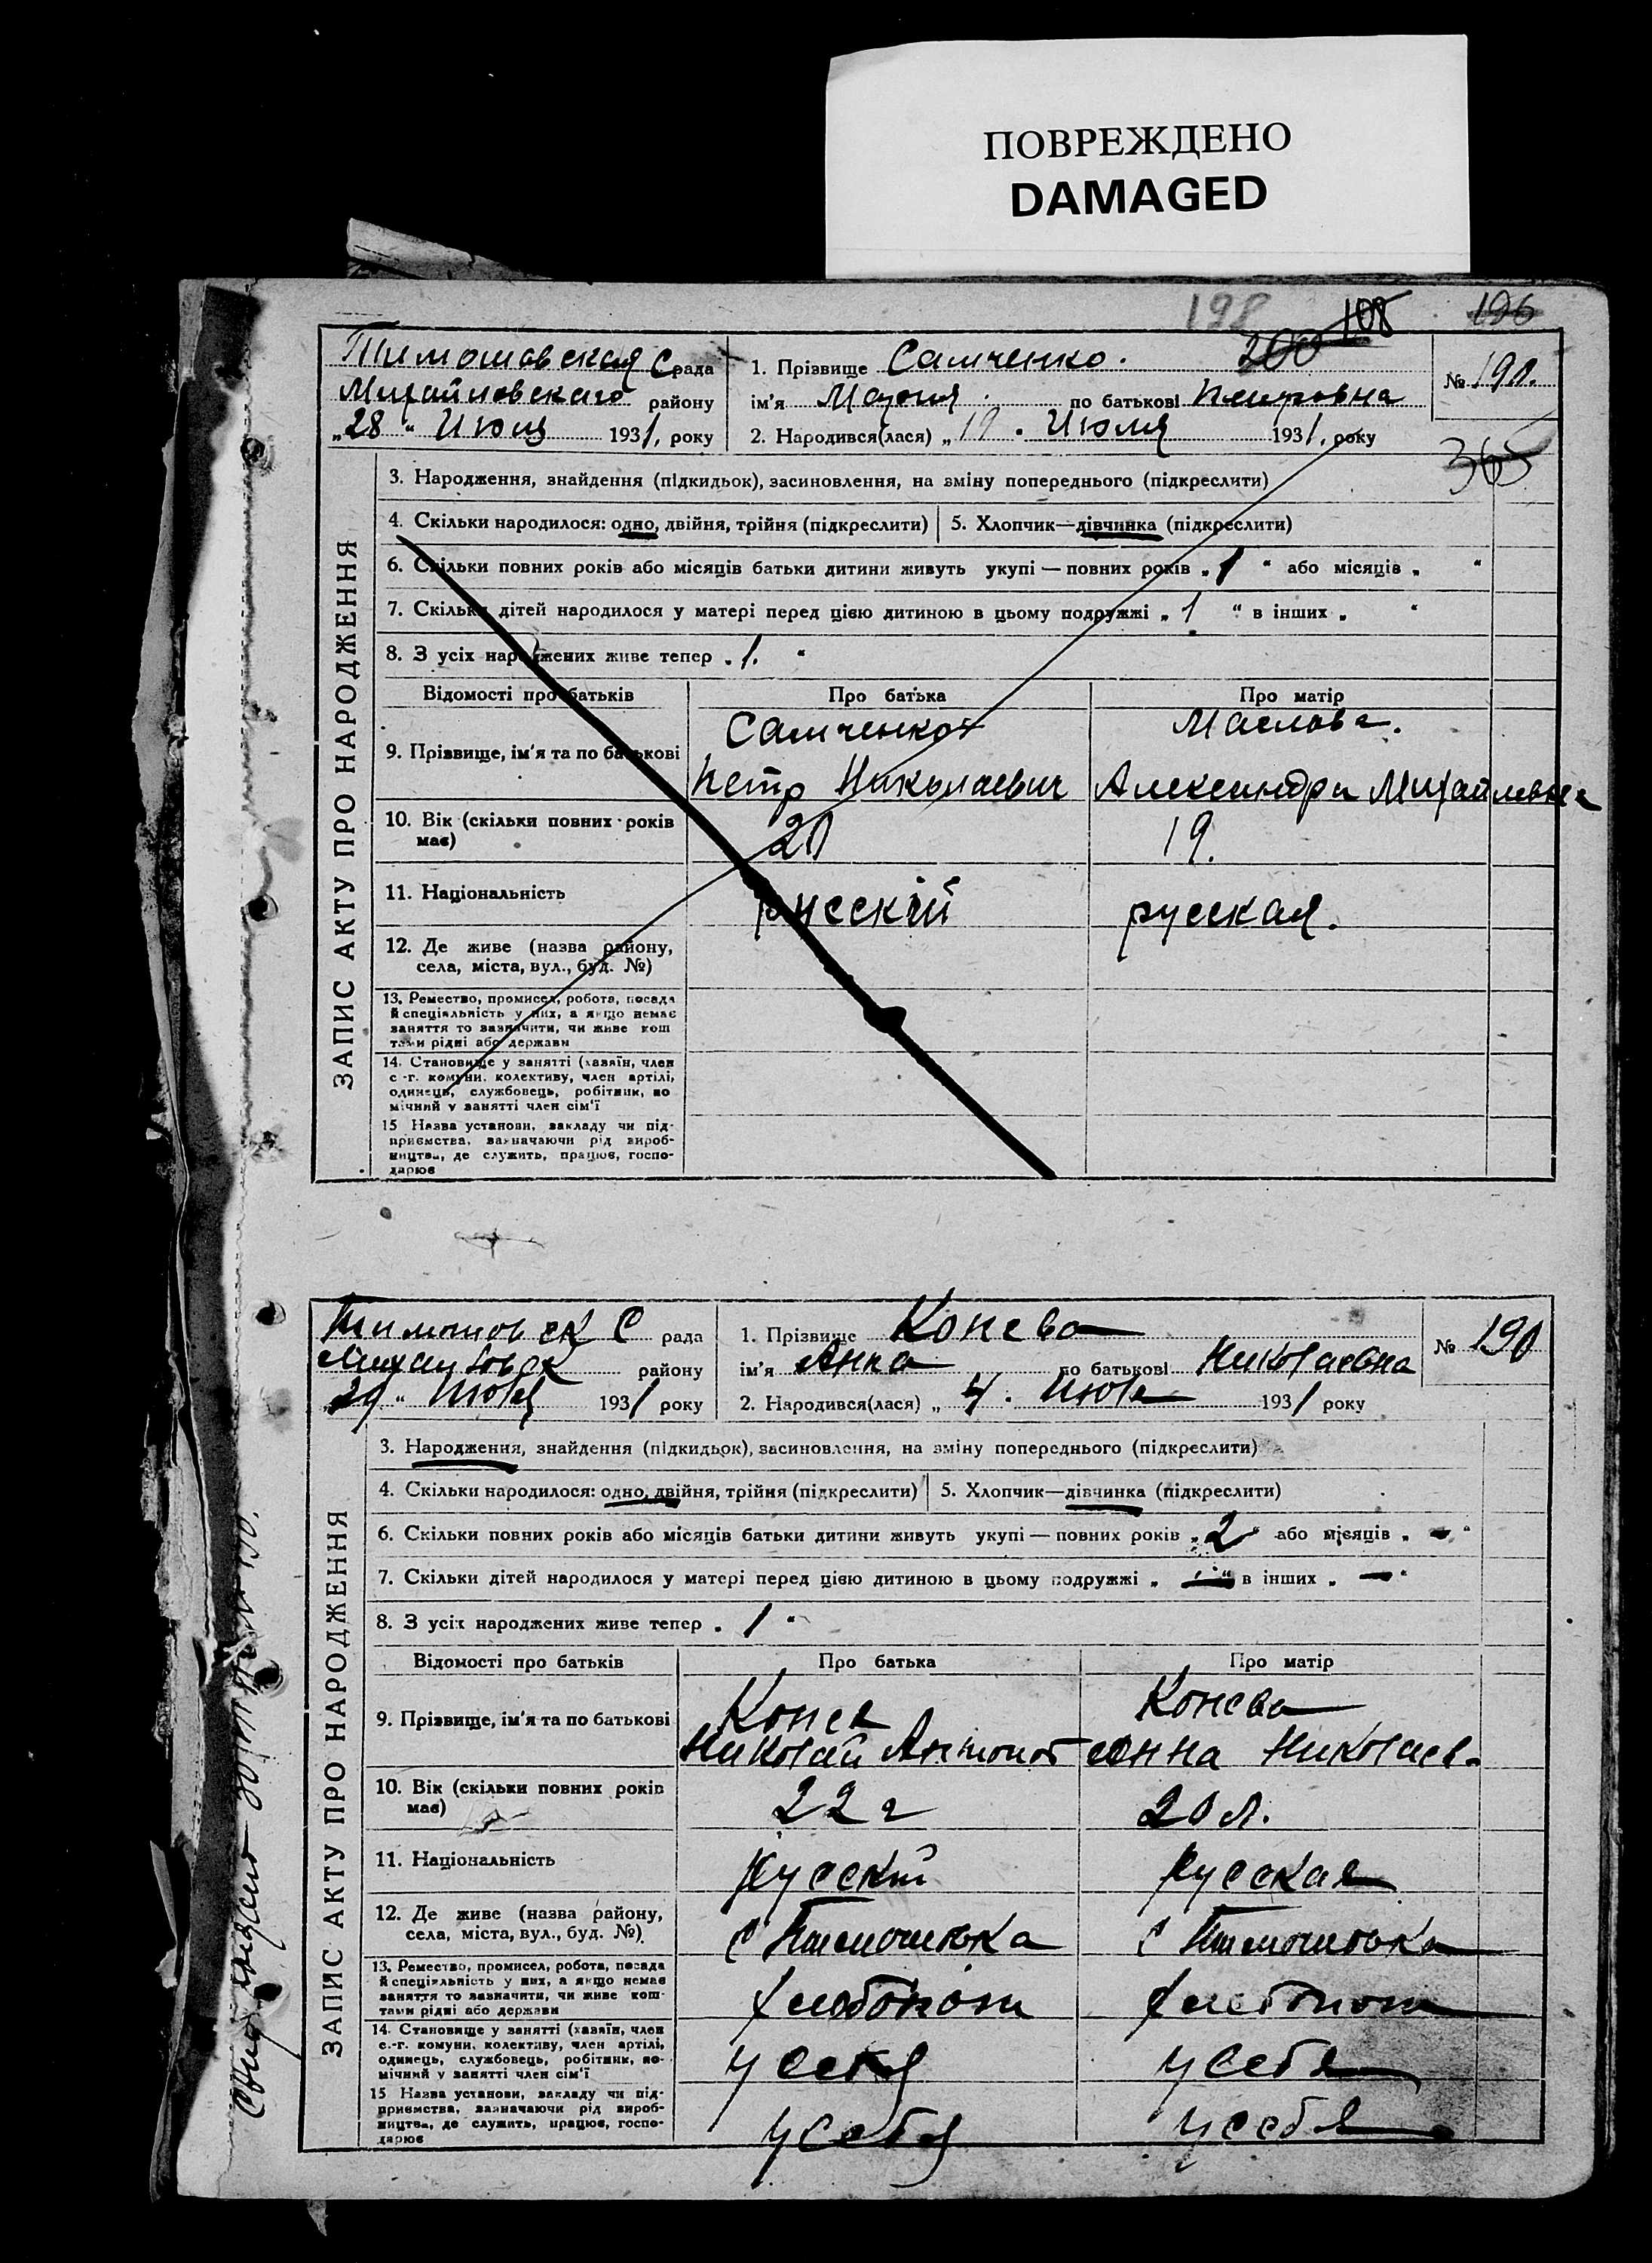 ПОВРЕЖДЕНО
DAMAGED
198
200 108 196
Тимошовская С рада
Михайловскаго району
„28“ Июля 1931, року
1. Прізвище Самченко.
ім'я Мария по батькові Петровна
2. Народився(лася) „19. Июля 1931, року
№ 190.
365
ЗАПИС АКТУ ПРО НАРОДЖЕННЯ
3. Народження, знайдення (підкидьок), засиновлення, на зміну попереднього (підкреслити)
4. Скільки народилося: одно, двійня, трійня (підкреслити) 5. Хлопчик—дівчинка (підкреслити)
6. Скільки повних років або місяців батьки дитини живуть укупі — повних років „1“ або місяців „ “
7. Скільки дітей народилося у матері перед цією дитиною в цьому подружжі „1“ в інших „ “
8. З усіх народжених живе тепер „1.“
Відомості про батьків Про батька Про матір
9. Прізвище, ім'я та по батькові Самченко Маслова.
Петр Николаевич Александра Михайловна
10. Вік (скільки повних років має) 20 19.
11. Національність русский русская.
12. Де живе (назва району,
села, міста, вул., буд. №)
13. Ремество, промисел, робота, посада
й спеціяльність у них, а якщо немає
заняття то зазначити, чи живе кош
тами рідні або держави
14. Становище у занятті (хазяїн, член
с.-г. комуни, колективу, член артілі,
одинець, службовець, робітник, по
мічний у занятті член сім'ї
15 Назва установи, закладу чи під-
приємства, зазначаючи рід вироб-
ництва, де служить, працює, госпо-
дарює
Тимошовск С рада
Михайловск району
29 “ Июля 1931 року
1. Прізвище Конева
ім'я Анна по батькові Николаевна
2. Народився(лася) „4. Июля 1931 року
№ 190
ЗАПИС АКТУ ПРО НАРОДЖЕННЯ
3. Народження, знайдення (підкидьок), засиновлення, на зміну попереднього (підкреслити)
4. Скільки народилося: одно, двійня, трійня (підкреслити) 5. Хлопчик—дівчинка (підкреслити)
6. Скільки повних років або місяців батьки дитини живуть укупі — повних років „2“ або місяців „—“
7. Скільки дітей народилося у матері перед цією дитиною в цьому подружжі „—“ в інших „—“
8. З усіх народжених живе тепер „1“
Відомості про батьків Про батька Про матір
9. Прізвище, ім'я та по батькові Конев Конева
Николай Антонов Анна Николаев-
10. Вік (скільки повних років має) 22 г 20 л.
11. Національність Русский Русская
12. Де живе (назва району,
села, міста, вул., буд. №) С Тимошовка С Тимошовка
13. Ремество, промисел, робота, посада
й спеціяльність у них, а якщо немає
заняття то зазначити, чи живе кош-
тами рідні або держави Хлебопаш Хлебопаш
14. Становище у занятті (хазяїн, член
с.-г. комуни, колективу, член артілі,
одинець, службовець, робітник, по-
мічний у занятті член сім'ї у себя у себя
15 Назва установи, закладу чи під-
приємства, зазначаючи рід вироб-
ництва, де служить, працює, госпо-
дарює у себя у себя